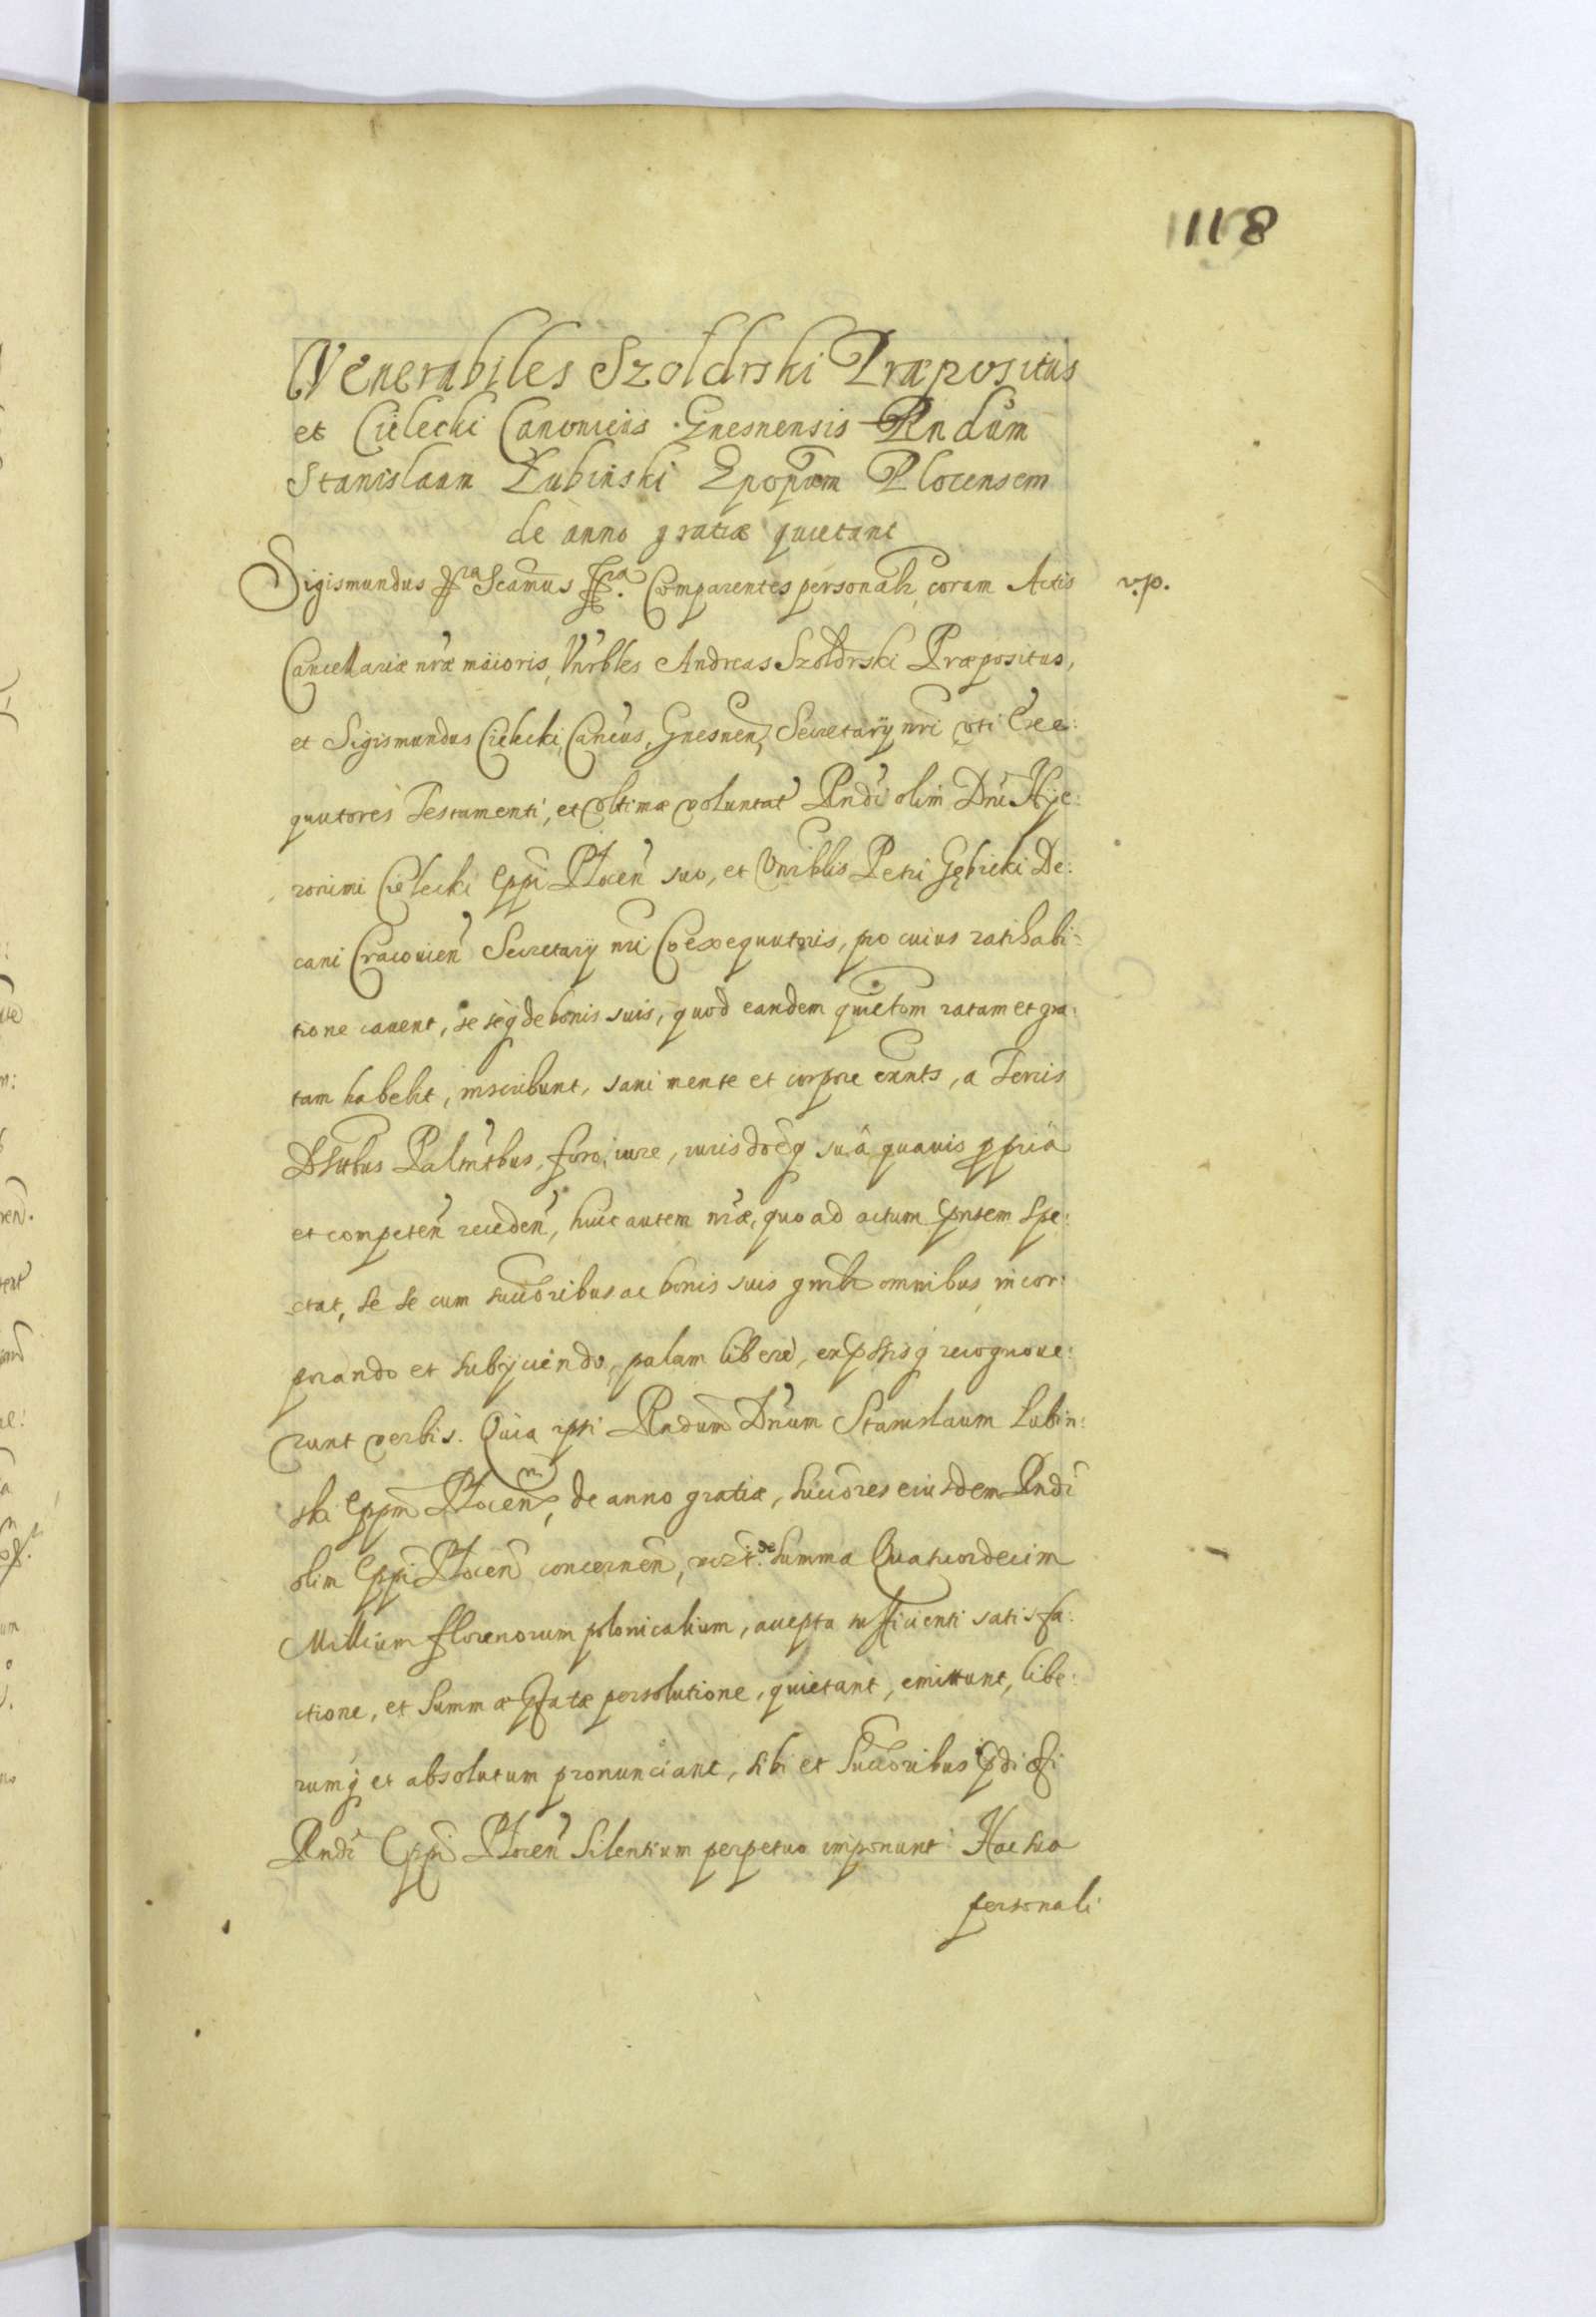 1118
Venerabiles Szołdrski Præpositus
et Cielecki Canonicus Gnesnensis Rndūm
Stanislaum Łubinski Epopum Plocensem
de anno gratiæ quietant
Sigismundus etc. Scamus etc. Comparentes personalr coram Actis
v.p.
Cancellariæ nræ maioris, Vnrbles Andreas Szołdrski Præpositus,
et Sigismundus Cielecki, Cancus, Gnesnen, Secretarij nri vti Exe:
quutores Testamenti, et vltimæ voluntat Rndi olim Dni Hye:
ronimi Cielecki Eppi Plocen suo, et Vnrblis Petri Gębicki De:
cani Cracouien Secretarij nri Coexequutoris, pro cuius ratihabi:
tione cauent, se seq de bonis suis, quod eandem quietom ratam et gra:
tam habebit, inscribunt, sani mente et corpore exnts, a Terris
Dstbus Palntbus, foro, iure, iurisdoeq suâ quauis ppriâ
et competen receden, huic autem nræ, quo ad actum pntem spe:
ctat, se se cum succoribus ac bonis suis gnrlr omnibus incor:
porando et subijciendo, palam libere, exprssisq recognoue:
runt verbis. Quia ipsi Rndum Dnum Stanislaum Lubin:
ski Eppm Plocen, de anno gratiæ, succores eiusdem Rndi
olim Eppi Plocen concernen, vczt. de summa Quatuordecim
Millium florenorum polonicalium, accepta sufficienti satisfa:
ctione, et summæ pfatæ persolutione, quietant, emittunt, libe:
rumq et absolutum pronunciant, sibi et Succoribus pdi olim
Rndi Eppi Plocen silentium perpetuo imponunt Hac sua
personali